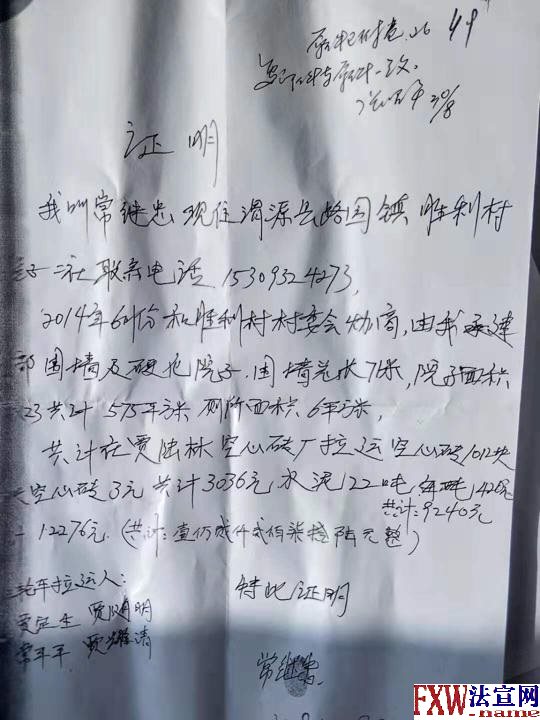 证明
我叫常继忠 现住渭源县路园镇胜利村
二社 联系电话 15309324273,
2014年6月份和胜利村村委会协商,由我承建
部围墙及硬化院子.围墙总长71米,院子面积
23共计575平方米 厕所面积6平方米,
共计在贾陆林空心砖厂拉运空心砖1012块
空心砖3元共计3036元,水泥22吨,每吨420元
共计:9240元
12276元.(共计:壹万贰仟贰佰柒拾陆元整)
车拉运人:
特此证明
常平平 贾耀清
常继忠
FXW法宣网
.name